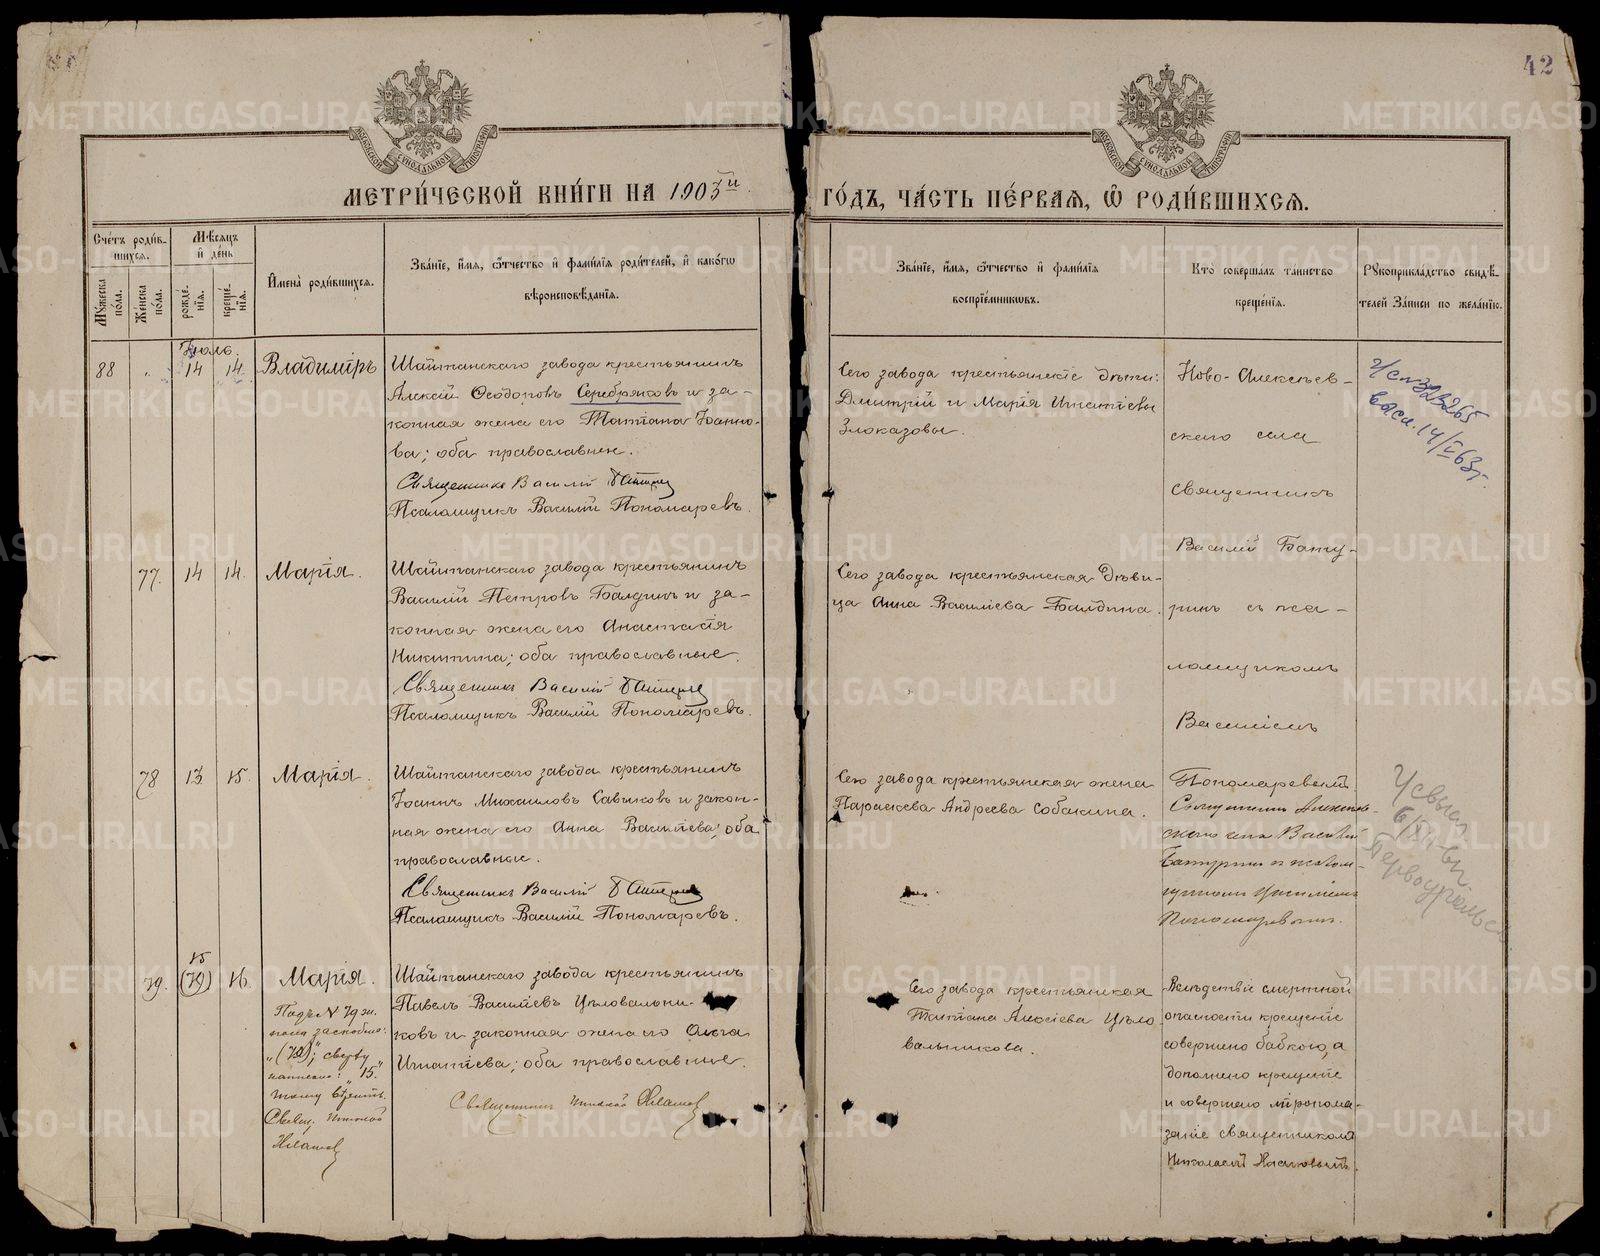 42
МОСКОВСКОЙ СѴНОДАЛЬНОЙ ТИПОГРАФІИ
МОСКОВСКОЙ СѴНОДАЛЬНОЙ ТИПОГРАФІИ
МЕТРИ́ЧЕСКОЙ КНИ́ГИ НА 1903й
ГО́ДЪ, ЧА́СТЬ ПЕ́РВАЯ, Ѿ РОДИ́ВШИХСЯ.
Сче́тъ роди́в-
шихся.
Мѣсяцъ
и де́нь
Му́жеска по́ла.
Же́нска по́ла.
рожде́-
нїя.
креще́-
нїя.
И҆мена̀ роди́вшихся.
Зва́нїе, и҆́мя, ѻ҆́тчество и҆ фамилїя роди́телей, и҆ како́гѡ
вѣроисповѣ́данїя.
Зва́нїе, и҆́мя, ѻ҆́тчество и҆ фамилїя
воспрїе́мниковъ.
Кто̀ соверша́лъ та́инство
креще́нїя.
Рꙋкоприкла́дство свидѣ́-
телей за́писи по жела́нїю.
Іюль.
88 " 14 14. Владиміръ
Шайтанскаго завода крестьянинъ
Алексій Ѳеодоровъ Серебряковъ и за-
конная жена его Татіана Іоанно-
ва; оба православные.
Священникъ Василій Батуринъ
Псаломщикъ Василій Пономаревъ.
Сего завода крестьянскіе дѣти:
Дмитрій и Марія Игнатіевы
Злоказовы.
Ново-Алексѣев-
скаго села
священникъ
Василій Бату-
ринъ съ пса-
ломщикомъ
Василіемъ
Пономаревымъ
323265
14/V 63г.
77. 14 14. Марія.
Шайтанскаго завода крестьянинъ
Василій Петровъ Балдинъ и за-
конная жена его Анастасія
Никитина; оба православные.
Священникъ Василій Батуринъ
Псаломщикъ Василій Пономаревъ.
Сего завода крестьянская дѣви-
ца Анна Василіева Балдина.
78 13 15. Марія.
Шайтанскаго завода крестьянинъ
Іоаннъ Михаиловъ Савиковъ и закон-
ная жена его Анна Василіева; оба
православные.
Священникъ Василій Батуринъ
Псаломщикъ Василій Пономаревъ.
Сего завода крестьянская жена
Параскева Андреева Собакина.
Священникъ Алексѣев-
скаго села Василій
Батуринъ и псалом-
щикомъ Василіемъ
Пономаревымъ.
Первоуральск
15
79. (79) 16. Марія.
Подъ N 79 
"(79)"; сверху
написано: "15."
тому вѣрить.
Свящ. Николай
Хламовъ
Шайтанскаго завода крестьянинъ
Павелъ Василіевъ Цѣловальни-
ковъ и законная жена его Ольга
Игнатіева; оба православные.
Священникъ Николай Хламовъ
Сего завода крестьянская
Татіана Алексіева Цѣло-
вальникова.
Вслѣдствіе смертной
опасности крещеніе
совершено бабкою, а
дополнено крещеніе
и совершено мѵропома-
заніе священникомъ
Николаемъ Хламовымъ.
METRIKI.GASO-URAL.RU